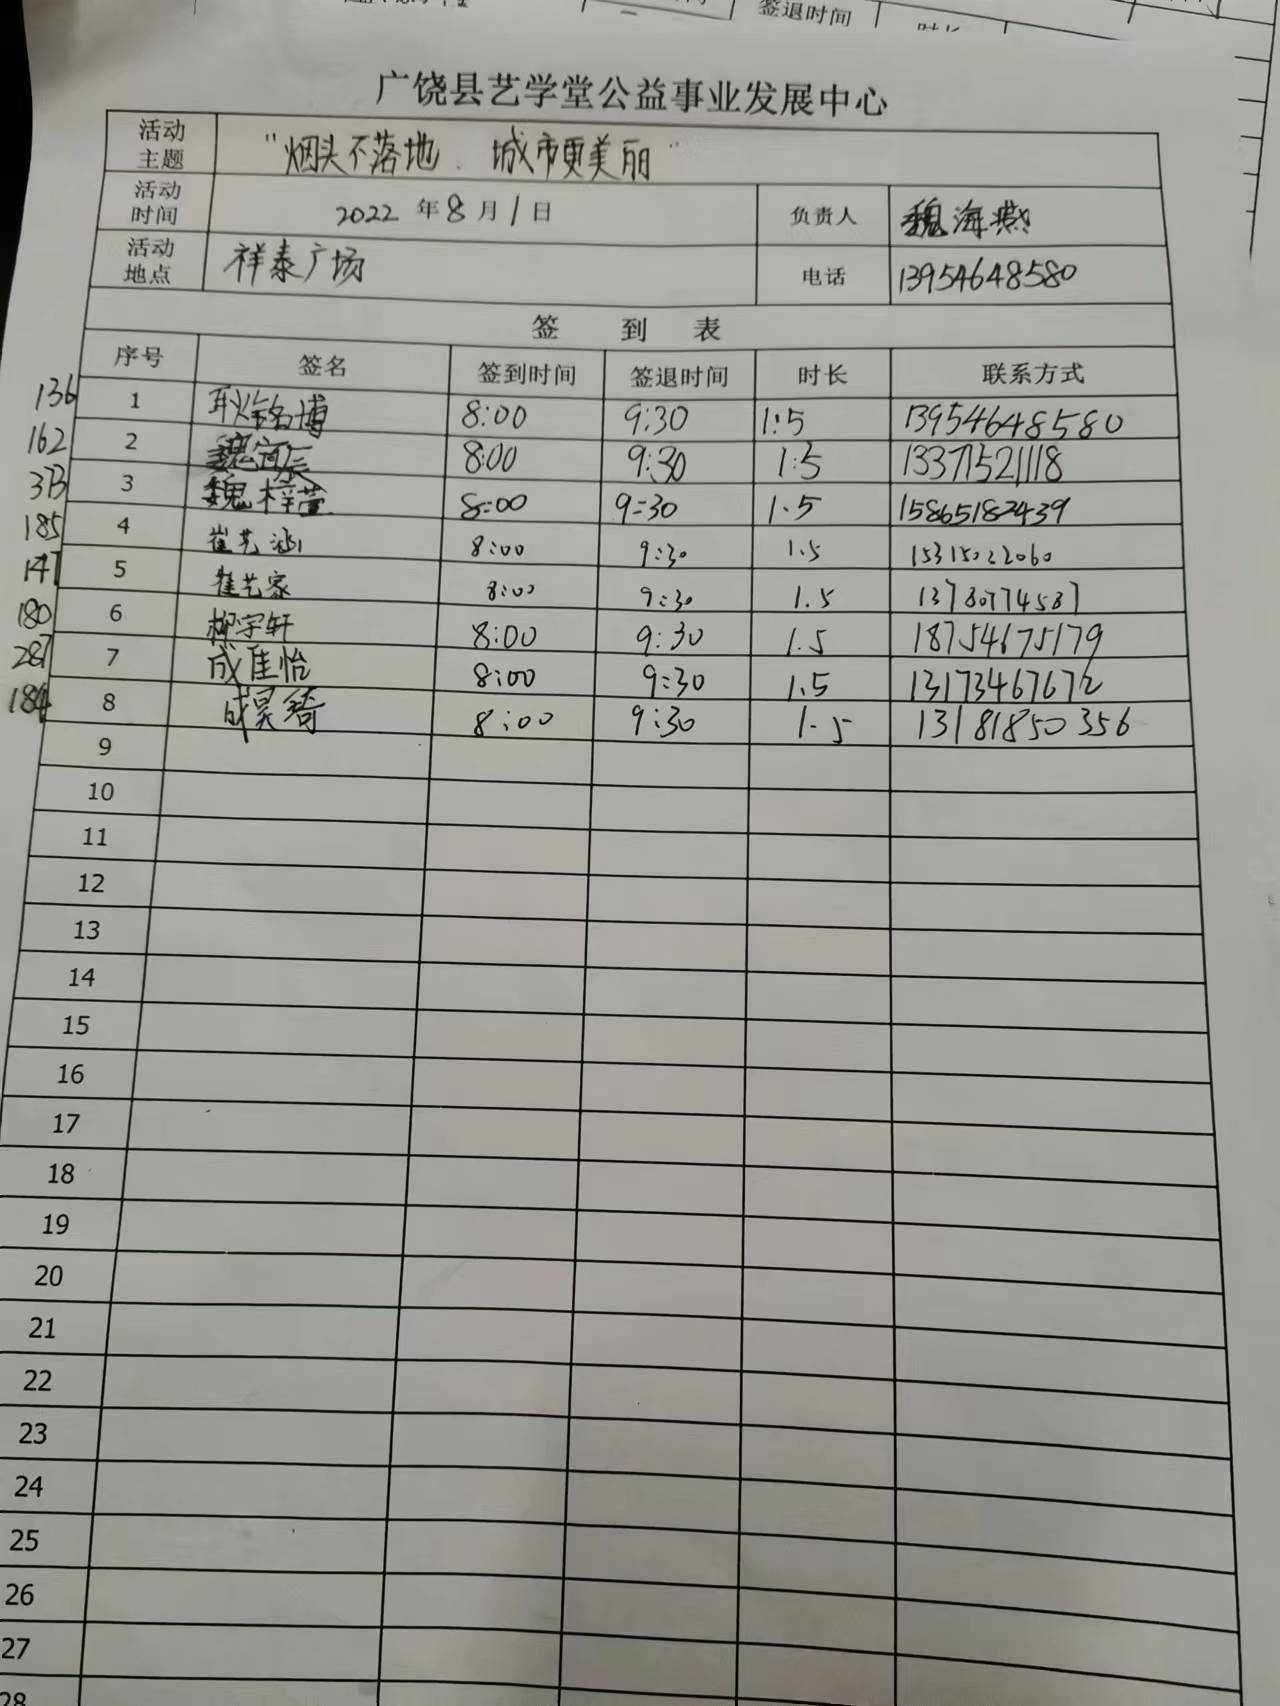 签退时间
广饶县艺学堂公益事业发展中心
活动主题 "烟头不落地、城市更美丽"
活动时间 2022年8月1日 负责人 魏海燕
活动地点 祥泰广场 电话 13954648580
签 到 表
序号 签名 签到时间 签退时间 时长 联系方式
136 1 耿铭博 8:00 9:30 1:5 13954648580
162 2 魏 8:00 9:30 1:5 13371521118
313 3 魏梓萱 8:00 9:30 1.5 15865182439
185 4 崔艺涵 8:00 9:30 1.5 15315022060
147 5 崔艺家 8:00 9:30 1.5
180 6 柳宇轩 8:00 9:30 1.5 18754675179
287 7 成佳怡 8:00 9:30 1.5 13173467672
184 8 成昊琦 8:00 9:30 1.5 13181850356
9
10
11
12
13
14
15
16
17
18
19
20
21
22
23
24
25
26
27
28